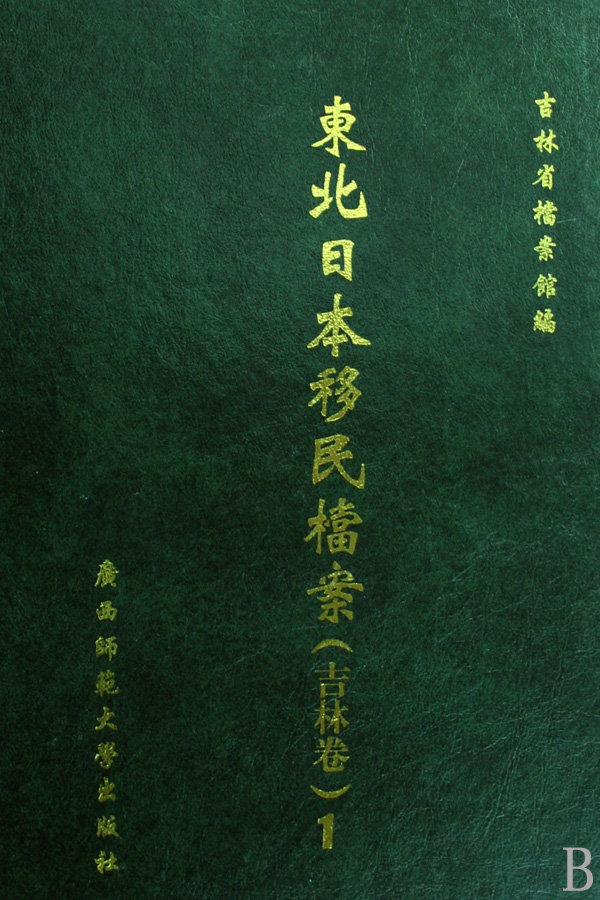 吉林省檔案館編
東北日本移民檔案(吉林卷)1
廣西師範大學出版社
B